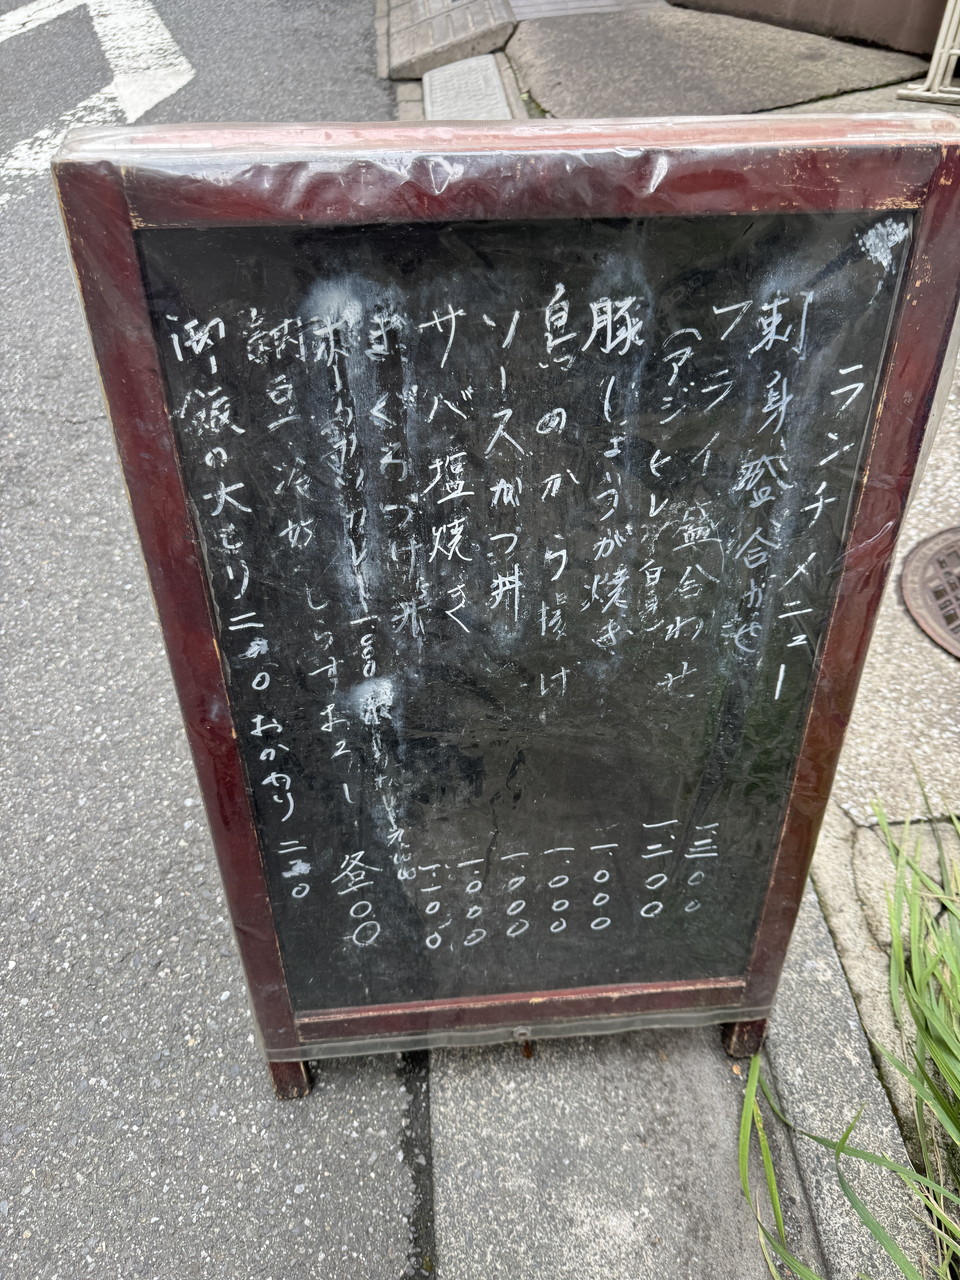 ランチメニュー
刺身盛合わせ 一.三〇〇
フライ盛合わせ 一.二〇〇
(アジ ヒレ 白身)
豚しょうが焼き 一.〇〇〇
鳥もものから揚げ 一.〇〇〇
ソースかつ丼 一.〇〇〇
サバ塩焼き 一.〇〇〇
まぐろづけ丼 一.一〇〇
ポークカツカレー 一.〇〇〇
納豆 冷奴 しらすおろし 各一〇〇
御飯の大もり 二〇〇 おかわり 二〇〇